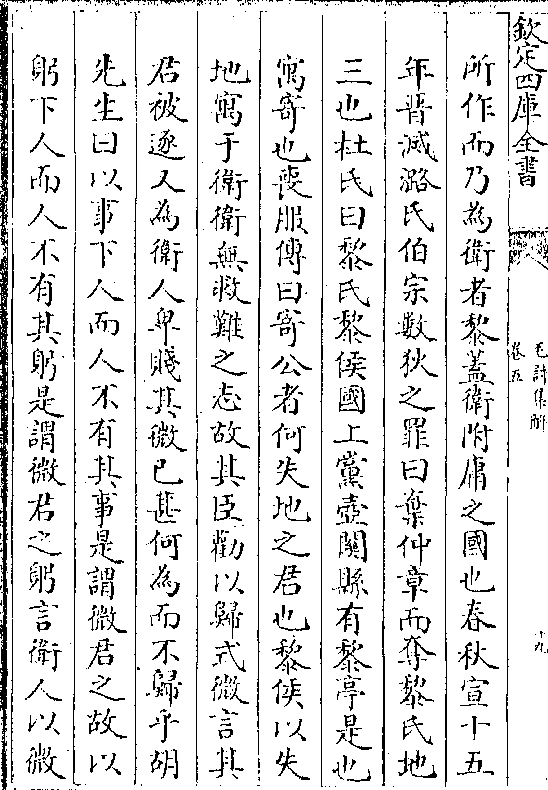 欽定四庫全書
毛詩集解
卷五
十九
所作而乃為衛者黎蓋衛附庸之國也春秋宣十五
年晉滅潞氏伯宗數狄之罪曰棄仲章而奪黎氏地
三也杜氏曰黎氏黎侯國上黨壺關縣有黎亭是也
寓寄也喪服傳曰寄公者何失地之君也黎侯以失
地寓于衛衛無救難之志故其臣勸以歸式微言其
君被逐又為衛人卑賤其微已甚何為而不歸乎胡
先生曰以事下人而人不有其事是謂微君之故以
躬下人而人不有其躬是謂微君之躬言衛人以微